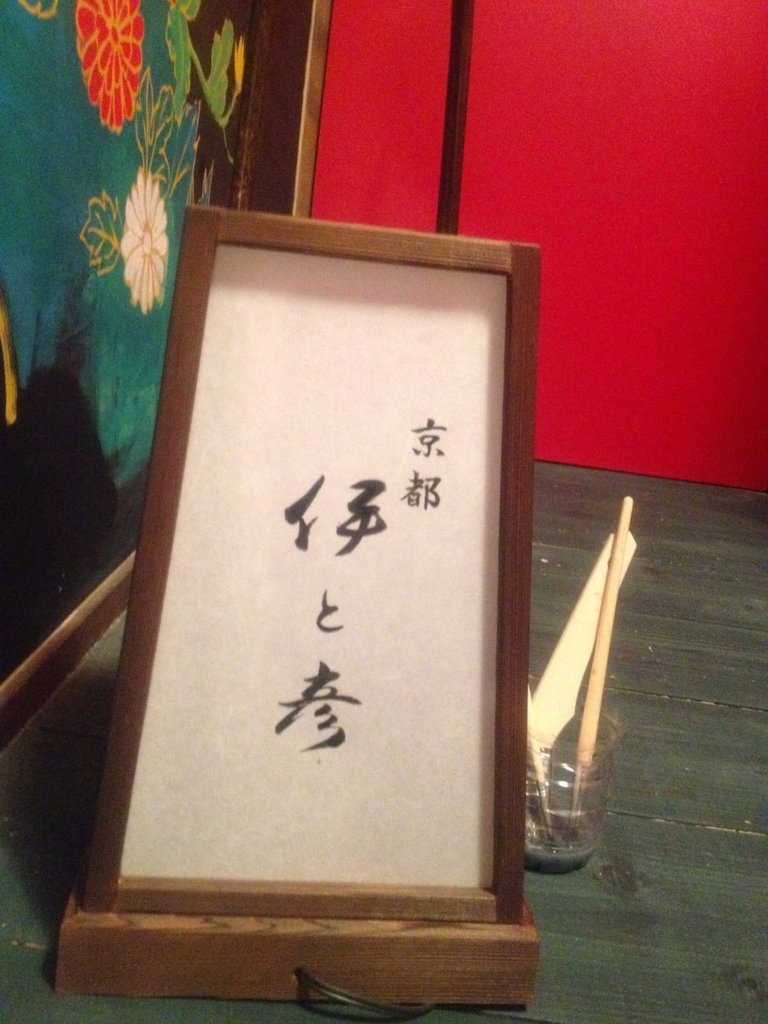 京都
伊と彦